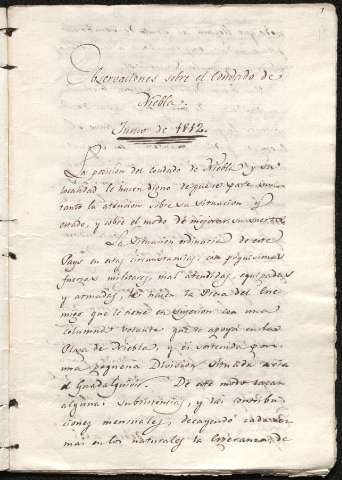 1
Observaciones sobre el Condado de
Niebla.
Junio de 1812.
La posicion del condado de Niebla y su
localidad le hacen digno de que se pare un
tanto la atencion sobre su situacion y
estado, y sobre el modo de mejorar su suerte.
La situacion ordinaria de este
Pays en estas circunstancias, con poquisimas
fuerzas militares, mal atendidas, equipadas
y armadas, la Presa del Ene
migo que le tiene en sujecion con una
columna volante que se apoya en la
Plaza de Niebla, y es sostenida por
una pequeña Division situada
el Guadalquivir. De este modo sacan
algunas subsistencias, y las contribu
ciones mensuales, decayendo cada vez
mas en los naturales la esperanza de